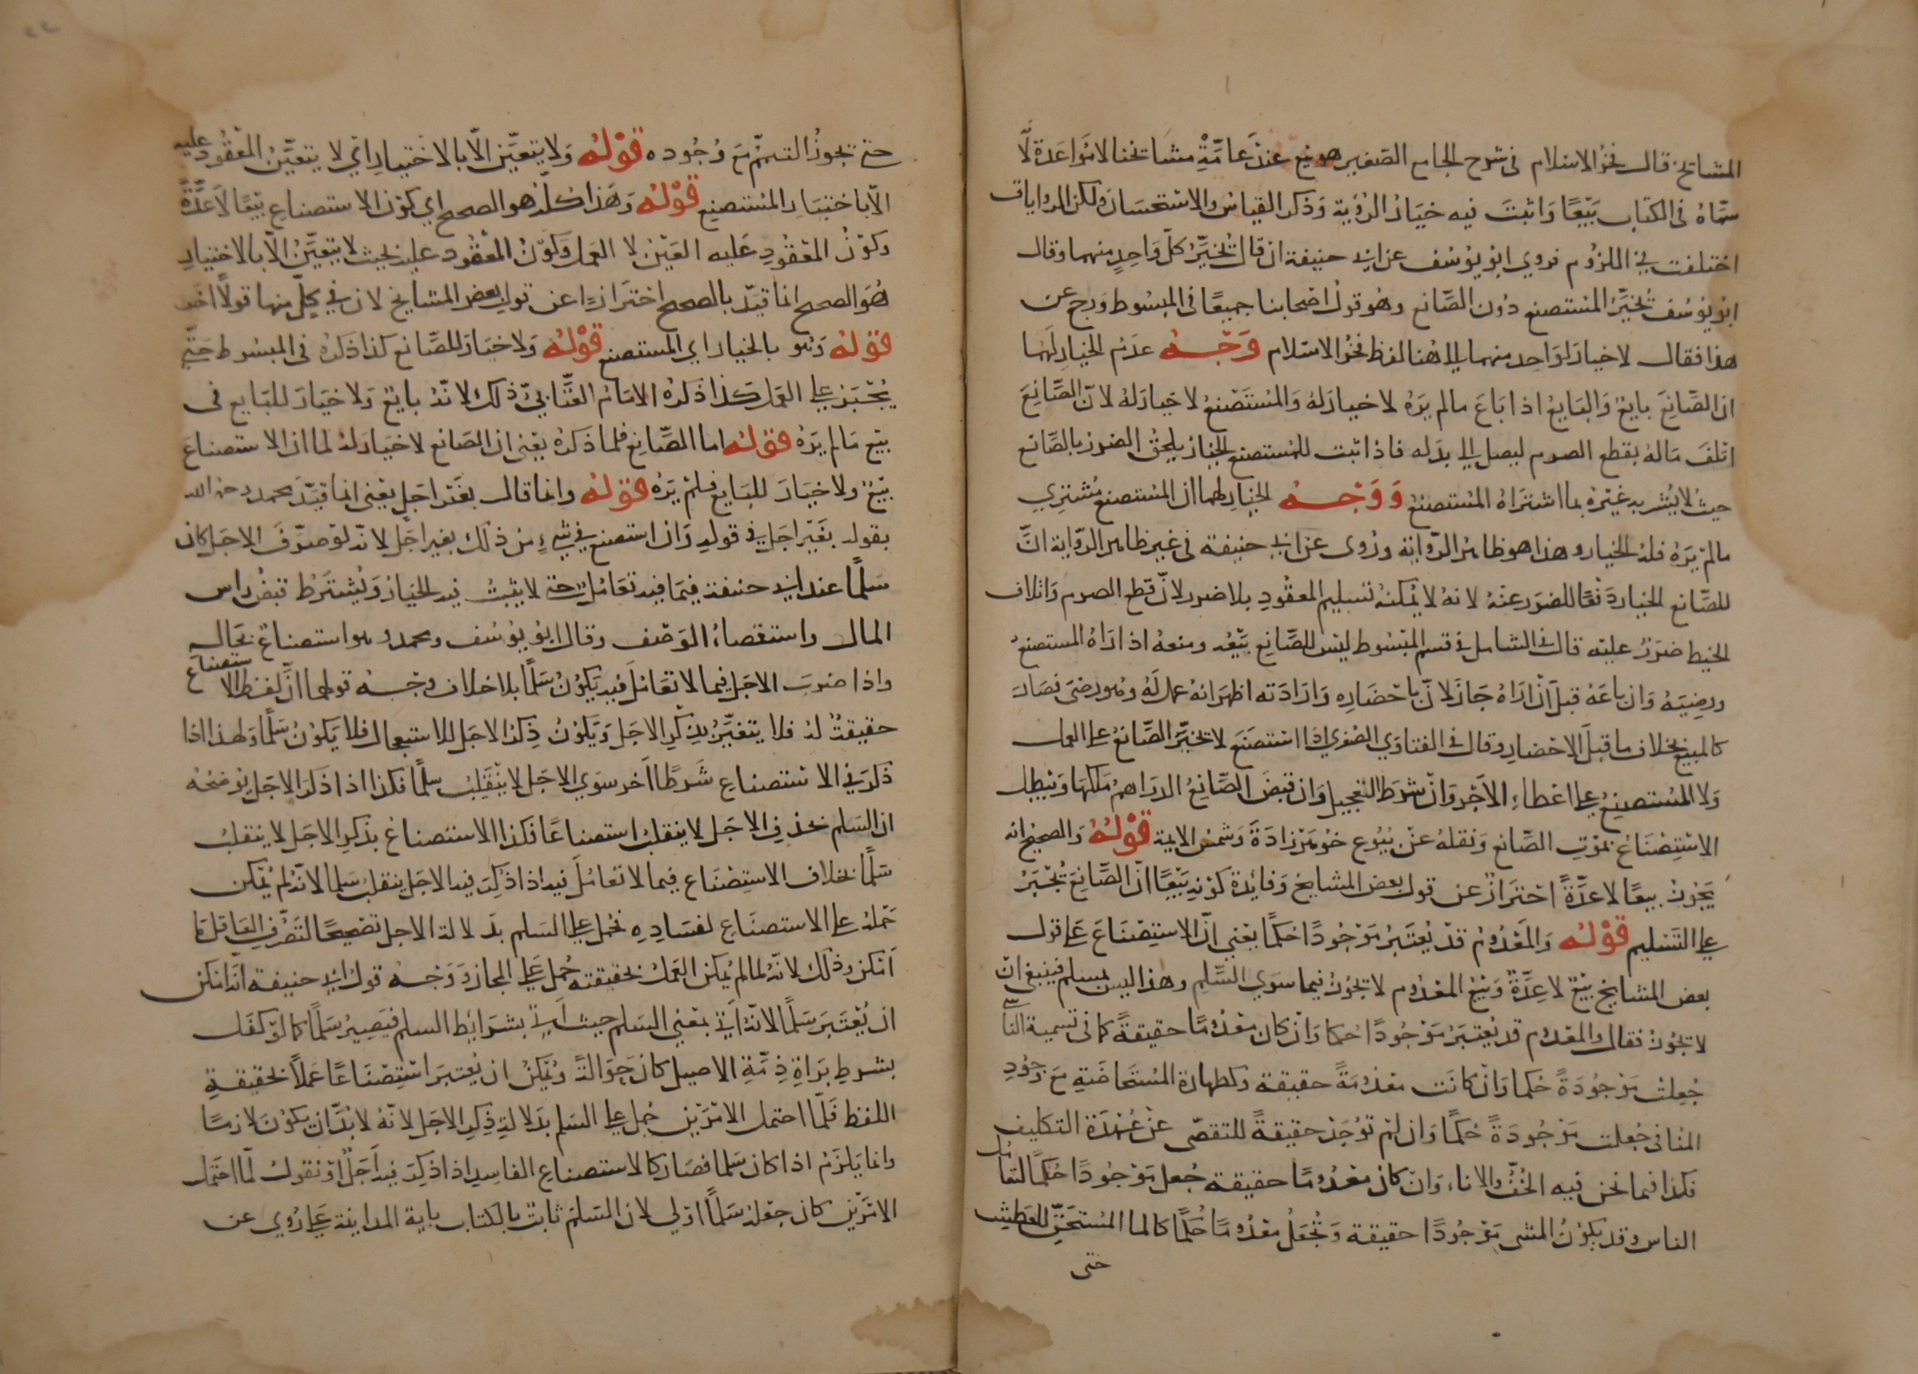 المشايخ قال فخر الاسلام في شرح الجامع الصغير هو بيع عند عامة مشايخنا لا مواعدة لما
سماه في الكتاب بيعا واثبت فيه خيار الرؤية وذكر القياس والاستحسان ولكن الروايات
اختلفت في الملزوم فروي ابو يوسف عن ابي حنيفة ان قال تخير كل واحد منهما وقال
ابو يوسف تخير المستصنع دون الصانع وهو قول اصحابنا جميعا في المبسوط ورجع عن
هذا فقال لا خيار لواحد منهما الي هنا لفظ فخر الاسلام وجه عدم الخيار لهما
ان الصانع بايع والبايع اذا باع ما لم يره لا خيار له والمستصنع لا خيار له لان الصانع
اتلف ماله بقطع الصرم ليصل الي بدله فاذا ثبت للمستصنع الخيار يلحق الضرر بالصانع
حيث لا يشتريه غيره بما اشتراه المستصنع ووجه الخيار لهما ان المستصنع مشتري
ما لم يره فله الخيار وهذا هو ظاهر الرواية وروي عن ابي حنيفة في غير ظاهر الرواية ان
للصانع الخيار دفعا للضرر عنه لانه لا يمكنه تسليم المعقود بلا ضرر لان قطع الصرم واتلاف
الخيط ضرر عليه قال في الشامل في قسم المبسوط ليس للصانع بيعه ومنعه اذا راه المستصنع
ورضيه وان باعه قبل ان اراه جاز لان باحضاره وارادته اظهر انه عمل له وهو رضي فصار
كالمبيع بخلاف ما قبل الاحضار وقال في الفتاوي الصغري اذا استصنع لا يخير الصانع على العمل
ولا المستصنع على اعطاء الاجر وان شرط التعجيل وان قبض الصانع الدراهم ملكها ويبطل
الاستصناع بموت الصانع ونقله عن بيوع خوهرزادة وشمس الايمة قوله والصحيح انه
يجوز بيعا لا عدة احتراز عن قول بعض المشايخ وفايدة كونه بيعا ان الصانع تجبر
على التسليم قوله والمعدوم قد يعتبر موجودا حكما يعني ان الاستصناع على قول
بعض المشايخ بيع لا عدة وبيع المعدوم لا يجوز فيما سوي السلم وهذا ليس بسلم فينبغي ان
لا يجوز فقال والمعدوم قد يعتبر موجودا حكما وان كان معدوما حقيقة كما في تسمية الناسي
جعلت موجودة حكما وان كانت معدومة حقيقة وكطهارة المستحاضة مع وجود
المنافي جعلت موجودة حكما وان لم توجد حقيقة للتقصي عن عهدة التكليف
فكذا فيما نحن فيه الخف والاناء وان كان معدوما حقيقة جعل موجودا حكما لتعامل
الناس وقد يكون الشي موجودا حقيقة وتجعل معدوما حكما كالماء المستحق للعطش
حتى
حتى يجوز التيمم مع وجوده قوله ولا يتعين الا بالاختيار اي لا يتعين المعقود عليه
الا باختيار المستصنع قوله وهذا كله هو الصحيح اي كون الاستصناع بيعا لا عدة
وكون المعقود عليه العين لا العمل وكون المعقود عليه بحيث لا يتعين الا بالاختيار
هو الصحيح انما قيد بالصحيح احترازا عن قول بعض المشايخ لان في كل منها قولا اخر
قوله وهو بالخيار اي المستصنع قوله ولا خيار للصانع كذا ذكره في المبسوط حتى
يجبر على العمل كذا ذكره الامام العتابي وذلك لانه بايع ولا خيار للبايع في
بيع ما لم يره قوله اما الصانع فلما ذكره يعني ان الصانع لا خيار له لما ان الاستصناع
بيع ولا خيار للبايع فيما لم يره قوله وانما قال بغير اجل يعني انما قيد محمد رحمه الله
بقوله بغير اجل في قوله وان استصنع في شيء من ذلك بغير اجل لانه لو ضرب الاجل كان
سلما عند ابي حنيفة فيما فيه تعامل حتى لا يثبت فيه الخيار ويشترط قبض راس
المال واستقصاء الوصف وقال ابو يوسف ومحمد هو استصناع بحاله
واذا ضرب الاجل فيما لا تعامل فيه يكون سلما بلا خلاف وجه قولهما ان لفظ الاستصناع
حقيقة له فلا يتغير بذكر الاجل ويكون ذكر الاجل للاستعجال فلا يكون سلما ولهذا اذا
ذكر في الاستصناع شرطا اخر سوي الاجل لا ينقلب سلما فكذا اذا ذكر الاجل يوضحه
ان السلم بحذف الاجل لا ينقلب استصناعا فكذا الاستصناع بذكر الاجل لا ينقلب
سلما بخلاف الاستصناع فيما لا تعامل فيه اذا ذكر فيه الاجل ينقلب سلما لانه لم يمكن
حمله على الاستصناع لفساده فحمل على السلم بدلالة الاجل تصحيحا لتصرف العاقل ما
امكن وذلك لانه لما لم يمكن العمل بحقيقته حمل على المجاز ووجه قول ابي حنيفة انه امكن
ان يعتبر سلما لانه اتي بمعني السلم حيث اتي بشرايط السلم فيصير سلما كما لو كفل
بشرط براة ذمة الاصيل كان حوالة ويمكن ان يعتبر استصناعا عملا بحقيقة
اللفظ فلما احتمل الامرين حمل على السلم بدلالة ذكر الاجل لانه لا بد ان يكون لازما
وانما يلزم اذا كان سلما فصار كالاستصناع الفاسد اذا ذكر فيه اجل او نقول لما احتمل
الامرين كان جعله سلما اولي لان السلم ثابت بالكتاب باية المداينة على ما روي عن